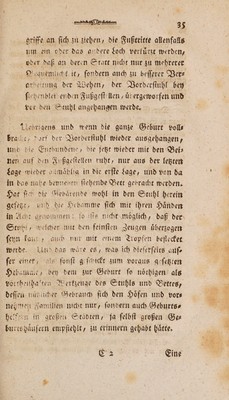 35
griffe an sich zu ziehen, die Fußtritte allenfalls
um ein oder das andere Loch verkürzt werden,
oder daß an deren Statt nicht nur zu mehrerer
Bequemlichkeit, sondern auch zu besserer Ver-
der Wehen, der Vorderstuhl bey
enden Fußgestellen, übergeworfen und
vor den Stuhl angehangen werde.
Uebrigens und wenn die ganze Geburt voll-
bracht, darf der Vorderstuhl wieder ausgehangen,
und die Entbundene, die jetzt wieder mit den Bei-
nen auf den Fußgestellen ruht, nur aus der letzten
Lage wieder allmählig in die erste Lage, und von da
in das nahe daneben stehende Bett gebracht werden.
Hat sich die Gebärende wohl in den Stuhl herein
gesetzt, und die Hebamme sich mit ihren Händen
in Acht genommen: so ists nicht möglich, daß der
Stuhl, welcher mit den feinsten Zeugen überzogen
seyn kann, auch nur mit einem Tropfen befleckt
werde. Und das wäre es, was ich dieserseits aus-
ser einer, als sonst g schickt zum voraus g setzten
Hebamme, bey dem zur Geburt so nöthigen als
vortheilhaften Werkzeuge des Stuhls und Bettes,
dessen nützlicher Gebrauch sich den Höfen und vor-
nehmen Familien nicht nur, sondern auch Geburts-
helfern in großen Städten, ja selbst großen Ge-
burtshäusern empfiehlt, zu erinnern gehabt hätte.
C 2 Eine